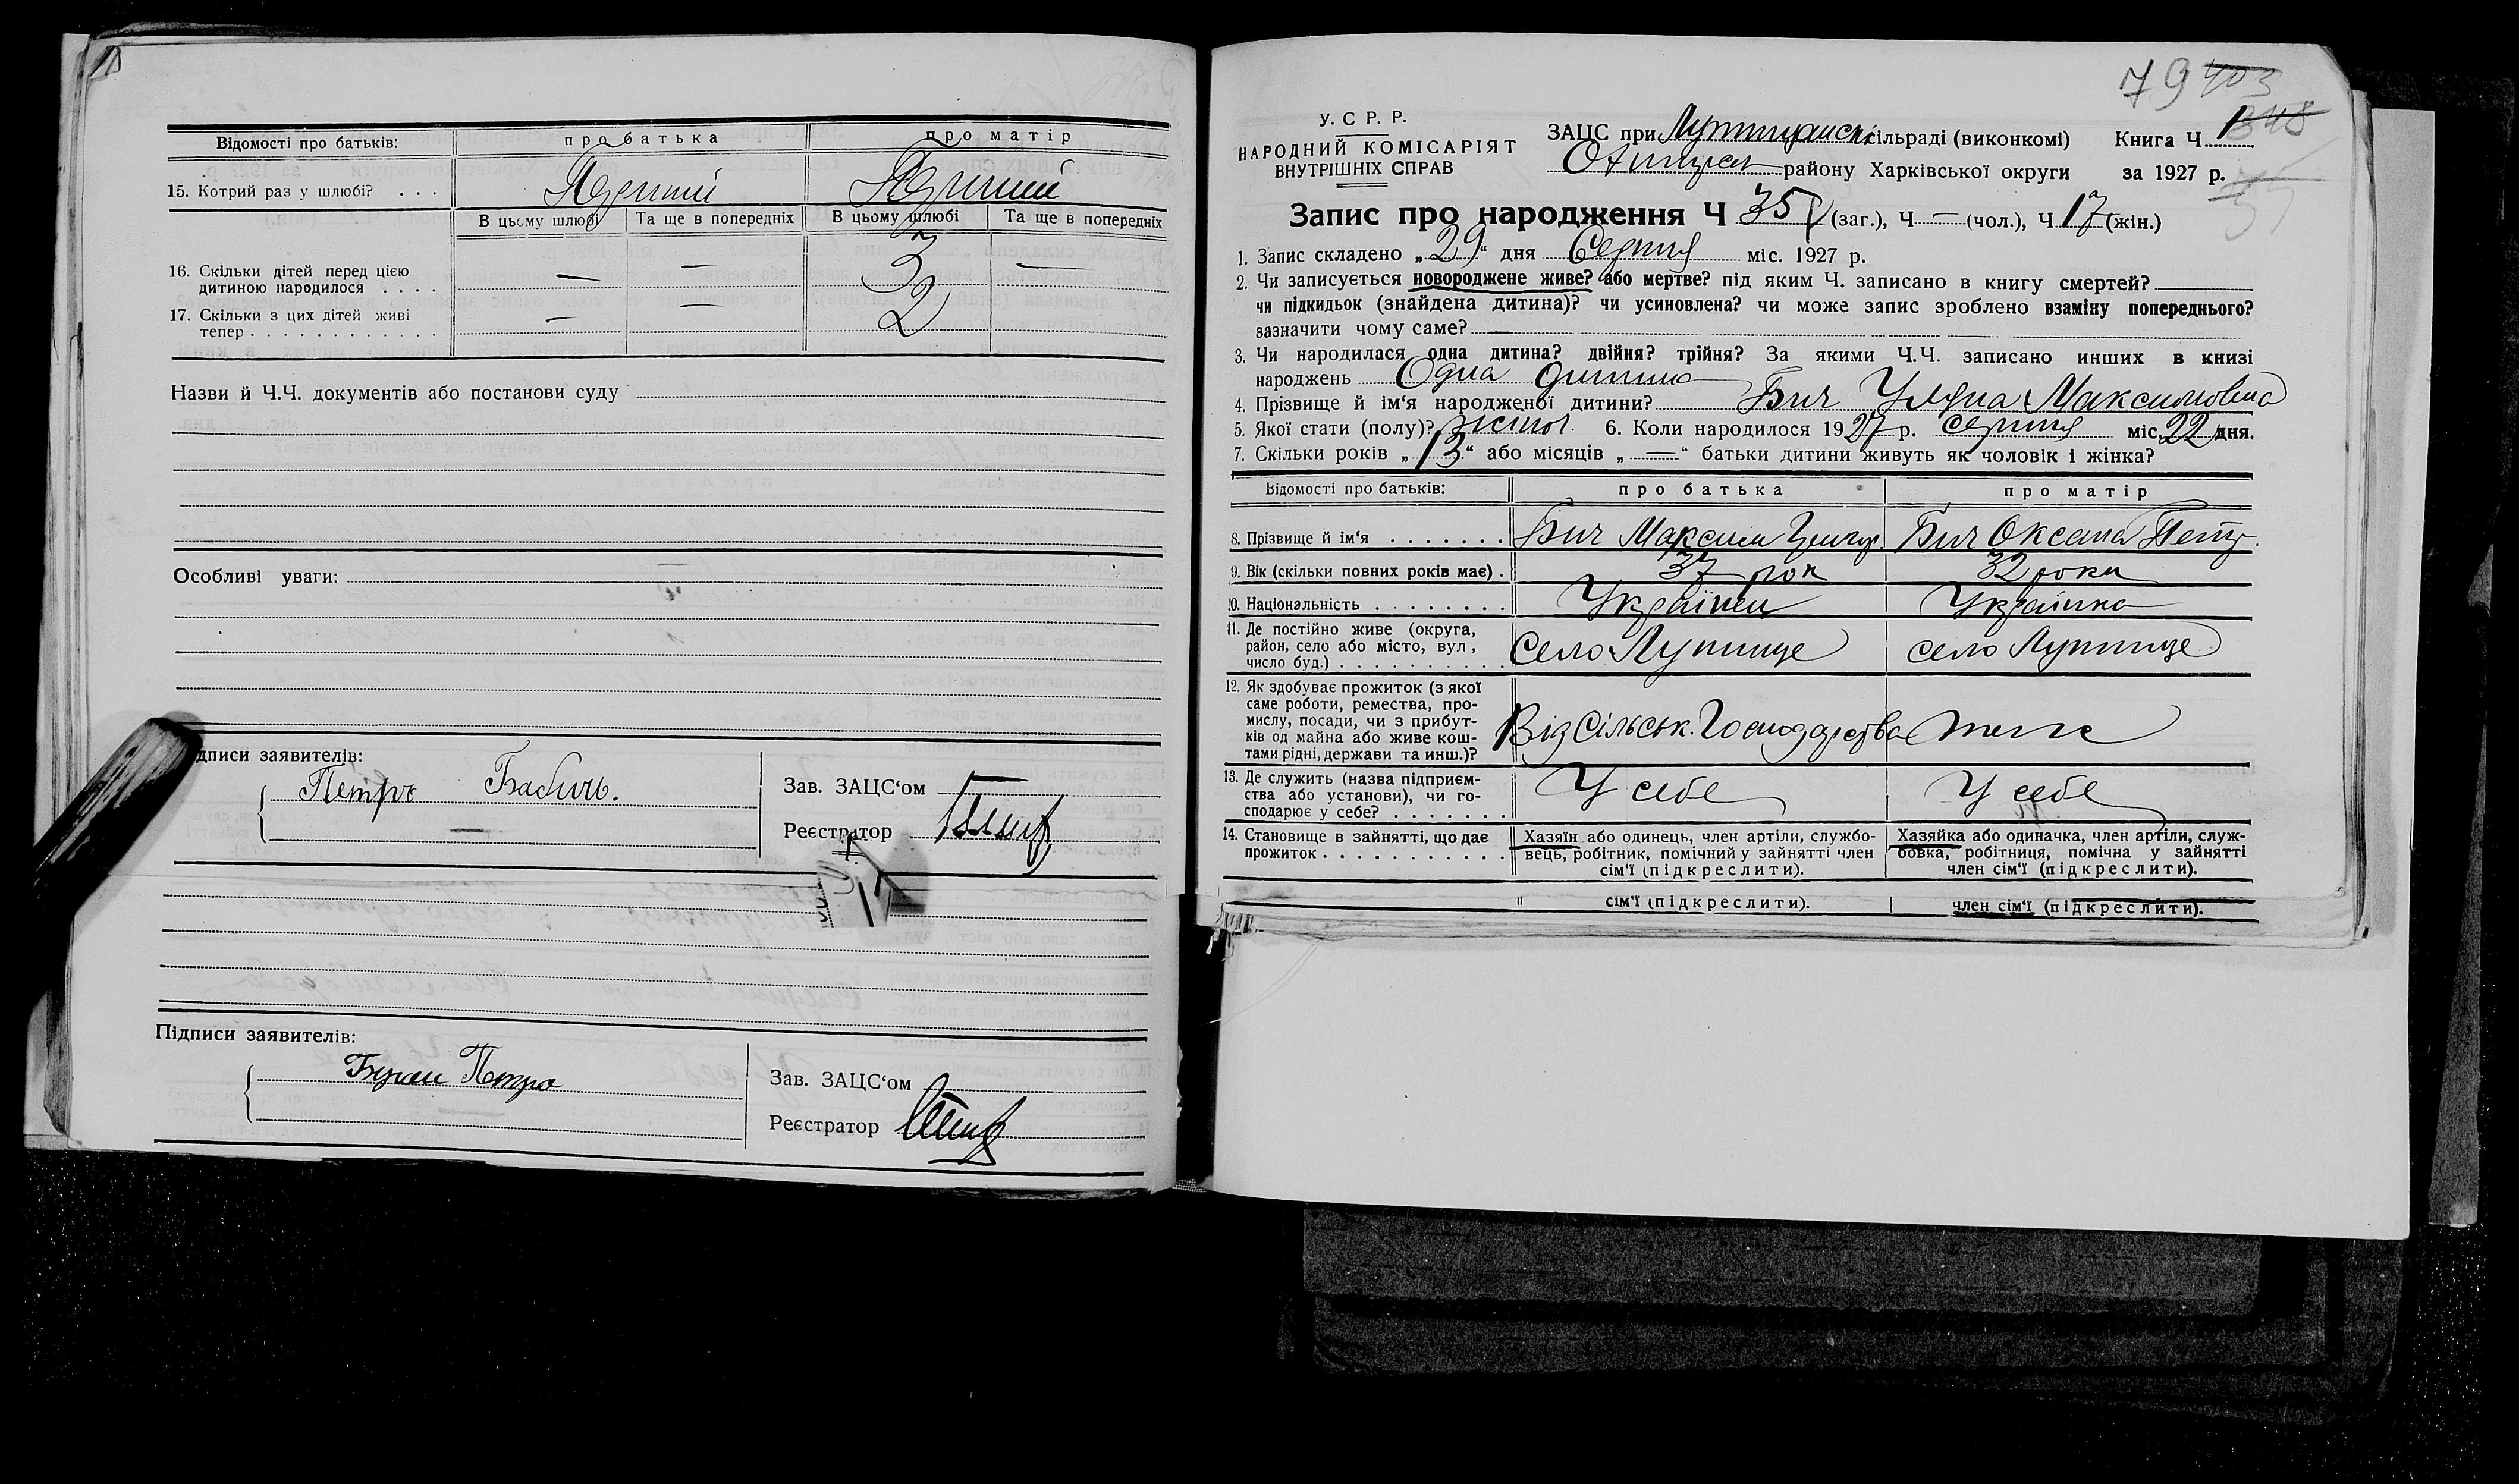 Відомості про батьків: про батька про матір
15. Котрий раз у шлюбі? . . .
В цьому шлюбі Та ще в попередніх В цьому шлюбі Та ще в попередніх
16. Скільки дітей перед цією
дитиною народилося . . . . — — 3 —
17. Скільки з цих дітей живі
тепер . . . . . . . . . . . . . — — 2
Назви й Ч.Ч. документів або постанови суду
Особливі уваги:
дписи заявителів:
Петро Бабичь.
—
Зав. ЗАЦС‘ом
Реєстратор
Підписи заявителів:
Петро
Зав. ЗАЦС‘ом
Реєстратор
79 403
348
У. С. Р. Р.
НАРОДНИЙ КОМІСАРІЯТ
ВНУТРІШНІХ СПРАВ
ЗАЦС при сільраді (виконкомі) Книга Ч. 1
району Харківської округи за 1927 р.
Запис про народження Ч 35 (заг.), Ч — (чол.), Ч 17 (жін.)
1. Запис складено „29“ дня Серпня міс. 1927 р.
2. Чи записується новороджене живе? або мертве? під яким Ч. записано в книгу смертей?
чи підкидьок (знайдена дитина)? чи усиновлена? чи може запис зроблено взаміну попереднього?
зазначити чому саме? —
3. Чи народилася одна дитина? двійня? трійня? За якими Ч.Ч. записано инших в книзі
народжень Одна дитина
4. Прізвище й ім‘я народженої дитини? Бич Уляна Максимовна
5. Якої стати (полу)? жіної. 6. Коли народилося 1927 р. серпня міс. 22 дня.
7. Скільки років „13“ або місяців „—“ батьки дитини живуть як чоловік і жінка?
Відомості про батьків: про батька про матір
8. Прізвище й ім‘я . . . . . . . Бич Максим Григор. Бич Оксана Петр.
9. Вік (скільки повних років має) . 37 рок 32 роки
10. Національність . . . . . . . . Українец Українка
11. Де постійно живе (округа,
район, село або місто, вул.,
число буд.) . . . . . . . . . . . село Лутище село Лутище
12. Як здобуває прожиток (з якої
саме роботи, ремества, про-
мислу, посади, чи з прибут-
ків од майна або живе кош-
тами рідні, держави та инш.)? Від Сільськ. Господарства теж
13. Де служить (назва підприєм-
ства або установи), чи го-
сподарює у себе? . . . . . . . У себе У себе
14. Становище в зайнятті, що дає
прожиток . . . . . . . . . . .
Хазяїн або одинець, член артіли, службо-
вець, робітник, помічний у зайнятті член
сім‘ї (підкреслити).
Хазяйка або одиначка, член артіли, служ-
бовка, робітниця, помічна у зайнятті
член сім‘ї (підкреслити).
сім‘ї (підкреслити). член сім‘ї (підкреслити).